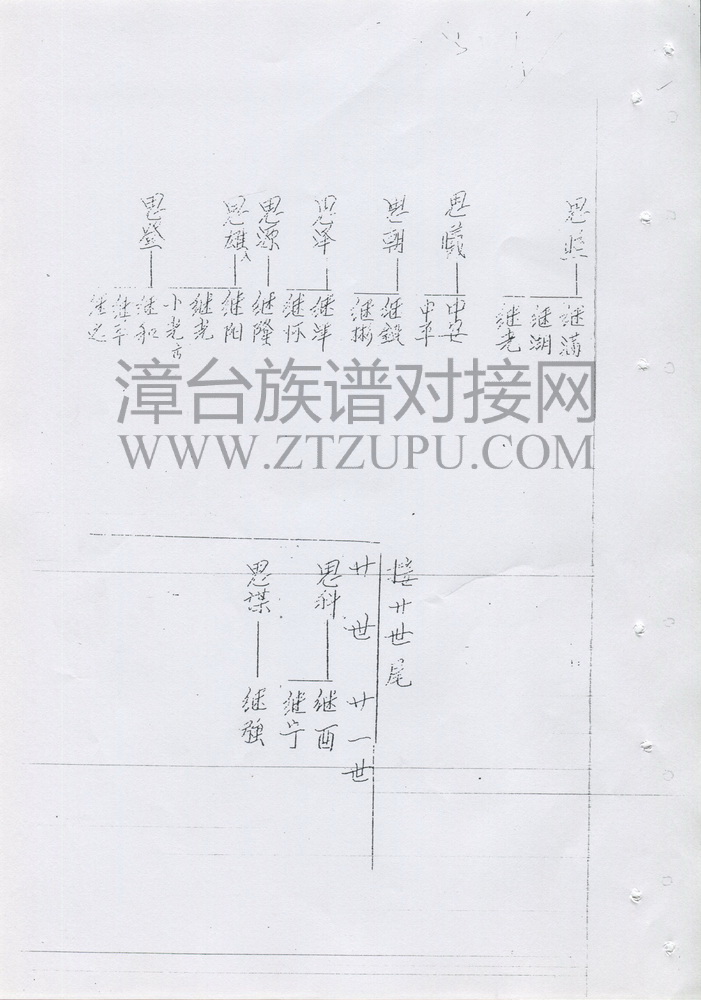 思照
继满
继湖
继光
思曦
中安
中平
思朝
继毅
继彬
思泽
继洋
继怀
思源
继隆
思雄
继阳
继光
小光古
思登
继和
继平
继远
漳台族谱对接网
WWW.ZTZUPU.COM
接廿世尾
廿世
廿一世
思科
继酉
继宁
思谋
继强